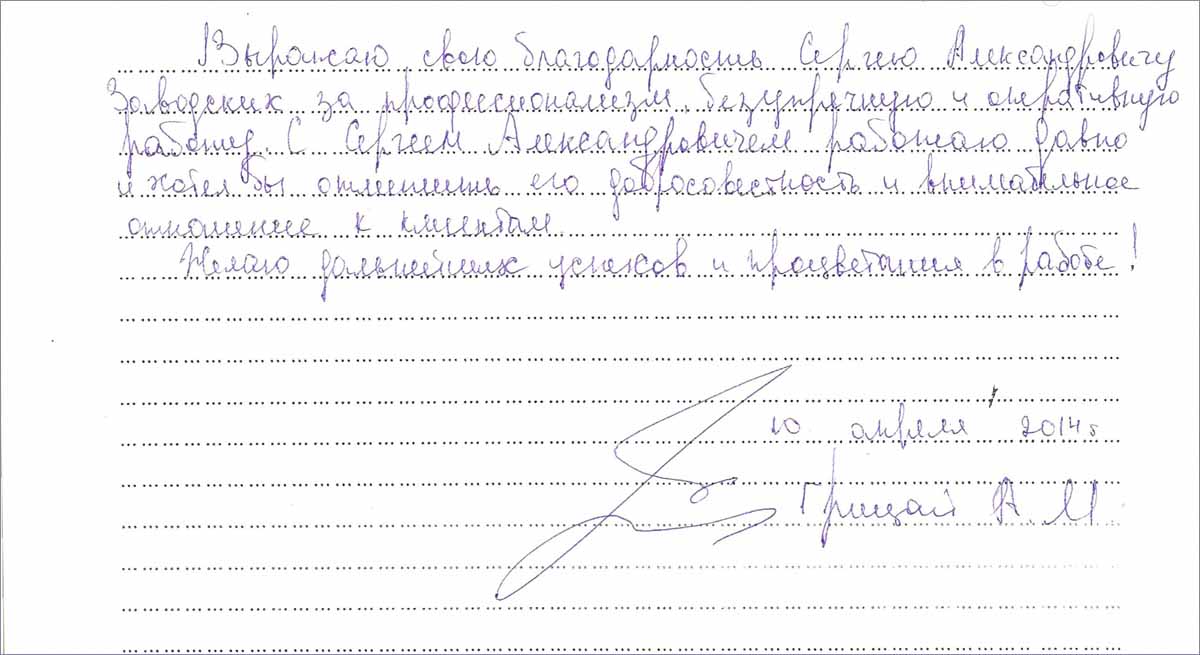 Выражаю свою благодарность Сергею Александровичу
Заводских за профессионализм, безупречную и оперативную
работу. С Сергеем Александровичем работаю давно
и хотел бы отметить его добросовестность и внимательное
отношение к клиентам.
Желаю дальнейших успехов и процветания в работе!
10 апреля 2014г
Грицай А.М.